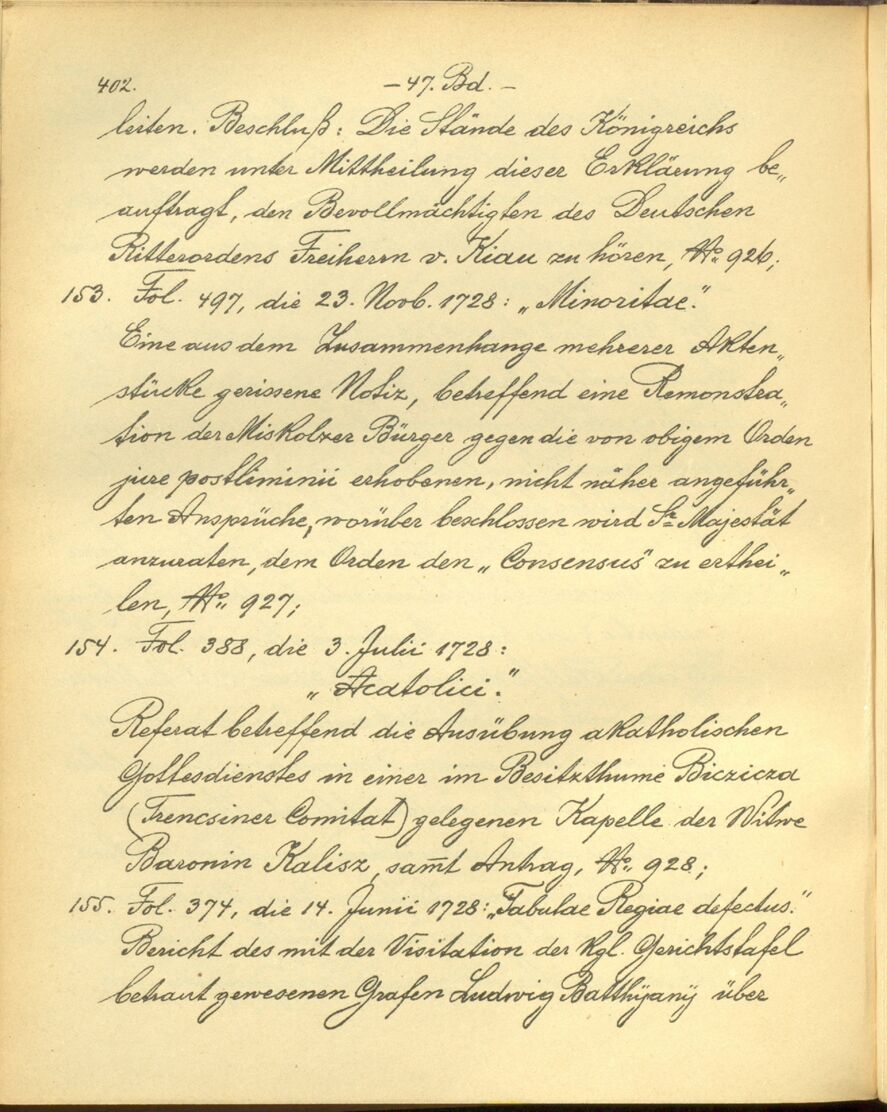 402.
– 47. Bd. –
leiten. Beschluß: Die Stände des Königreichs
werden unter Mittheilung dieser Erklärung be„
auftragt, den Bevollmächtigten des Deutschen
Ritterordens Freiherrn v. Kiau zu hören, No. 926;
153. Fol. 497, die 23. Novb. 1728: „Minoritae."
Eine aus dem Zusammenhange mehrerer Akten„
stücke gerissene Notiz, betreffend eine Remonstra„
tion der Miskolzer Bürger gegen die von obigem Orden
jure postliminii erhobenen, nicht näher angeführ„
ten Ansprüche, worüber beschlossen wird Sr Majestät
anzuraten, dem Orden den „Consensus" zu erthei„
len, No. 927;
154. Fol. 388, die 3. Julii 1728:
„Acatolici."
Referat betreffend die Ausübung akatholischen
Gottesdienstes in einer im Besitzthume Biczicza
(Trencsiner Comitat) gelegenen Kapelle der Witwe
Baronin Kalisz, sam̄t Antrag, No. 928;
155. Fol. 374, die 14. Junii 1728: „Tabulae Regiae defectus."
Bericht des mit der Visitation der kgl. Gerichtstafel
betraut gewesenen Grafen Ludwig Batthÿanÿ über